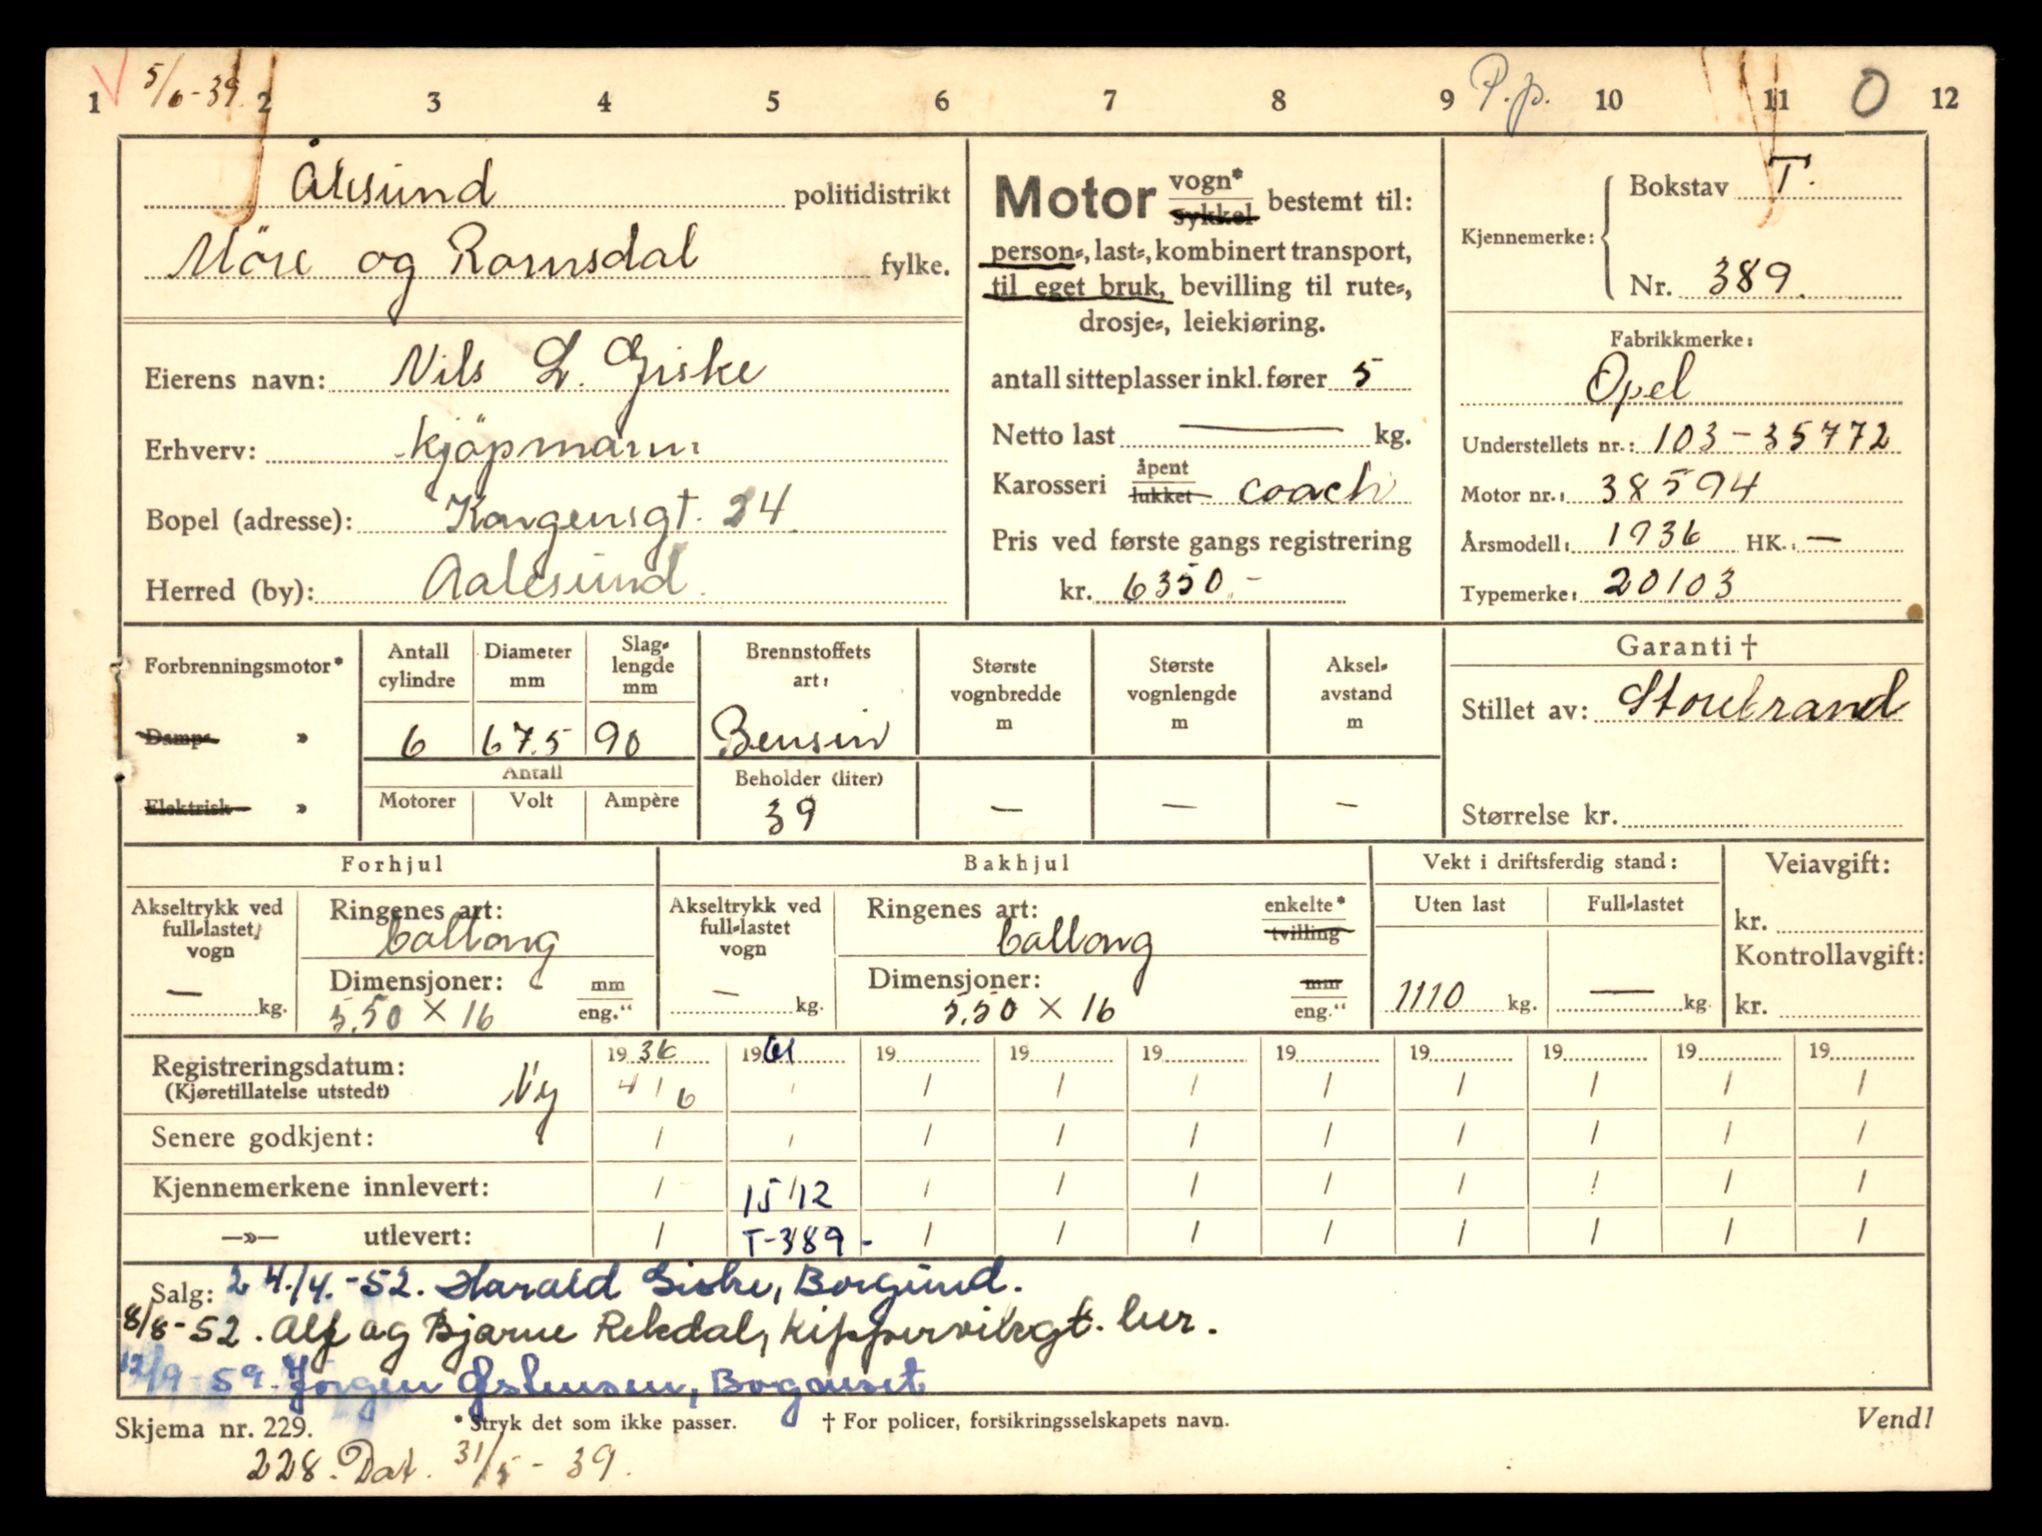 1 5/6-39. 2 3 4 5 6 7 8 9 P.p. 10 11 0 12
Ålesund politidistrikt
Möre og Romsdal fylke.
Eierens navn: Nils L. Giske
Erhverv: kjöpmann
Bopel (adresse): Kongensgt. 24
Herred (by): Aalesund.
Motor vogn* sykkel bestemt til:
person-, last-, kombinert transport,
til eget bruk, bevilling til rute-,
drosje-, leiekjøring.
antall sitteplasser inkl. fører 5
Netto last — kg.
Karosseri åpent lukket coach
Pris ved første gangs registrering
kr. 6350.-
Kjennemerke: Bokstav T.
Nr. 389.
Fabrikkmerke:
Opel
Understellets nr.: 103-35772
Motor nr.: 38594
Årsmodell: 1936 HK.: —
Typemerke: 20103
Forbrenningsmotor*
Damp- »
Elektrisk »
Antall cylindre
6
Diameter mm
67.5
Slaglengde mm
90
Antall
Motorer Volt Ampère
Brennstoffets art:
Bensin
Beholder (liter)
39
Største vognbredde m
—
Største vognlengde m
—
Akselavstand m
—
Garanti †
Stillet av: Storebrand
Størrelse kr.
Forhjul
Akseltrykk ved full-lastet vogn
— kg.
Ringenes art:
ballong
Dimensjoner: mm
5.50 × 16 eng."
Bakhjul
Akseltrykk ved full-lastet vogn
— kg.
Ringenes art: enkelte*
ballong tvilling
Dimensjoner: mm
5.50 × 16 eng."
Vekt i driftsferdig stand:
Uten last Full-lastet
1110 kg. — kg.
Veiavgift:
kr.
Kontrollavgift:
kr.
Registreringsdatum: 1936 1961 19 19 19 19 19 19 19 19
(Kjøretillatelse utstedt) Ny 4/6 / / / / / / / / /
Senere godkjent: / / / / / / / / / /
Kjennemerkene innlevert: / 15/12 / / / / / / / /
—»— utlevert: / T-389- / / / / / / / /
Salg: 24./4.-52. Harald Giske, Borgund.
8/8-52. Alf og Bjarne Rekdal, Kippervikgt. her.
12/9-59. Jørgen Østensen, Bogneset
Skjema nr. 229. * Stryk det som ikke passer. † For policer, forsikringsselskapets navn. Vend!
228. Dat. 31/5-39.